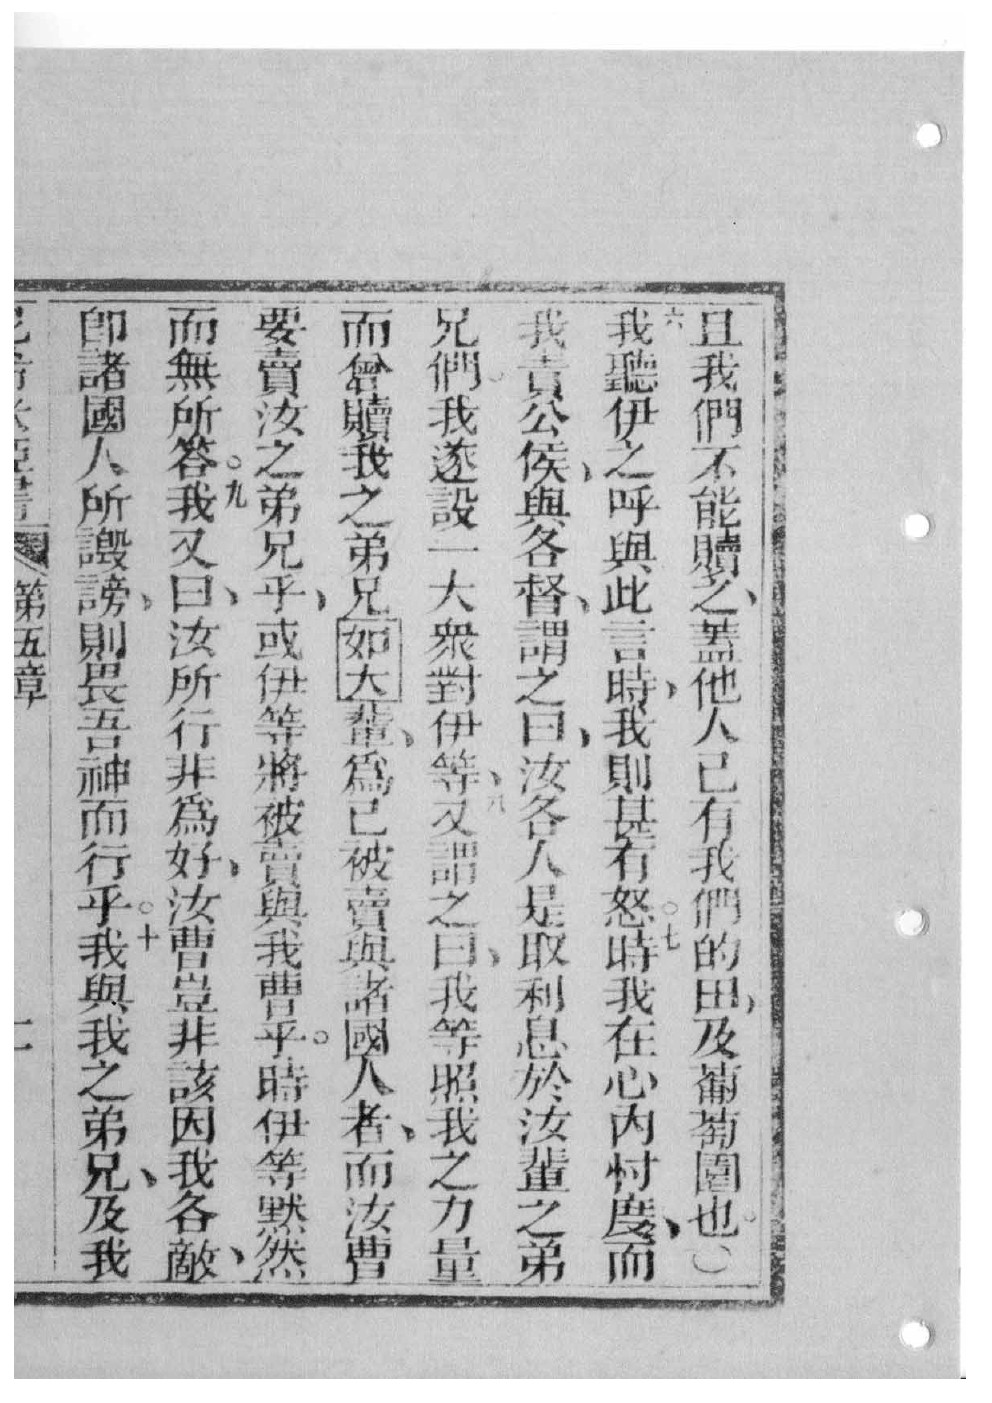 且我們不能贖之、蓋他人已有我們的田、及葡萄園也。○
六我聽伊之呼與此言時、我則甚有怒。七時我在心內忖度、而
我責公侯、與各督、謂之曰、汝各人是取利息於汝輩之弟
兄們。我遂設一大衆對伊等、八又謂之曰、我等照我之力量
而曾贖我之弟兄如大輩、為已被賣與諸國人者、而汝曹
要賣汝之弟兄乎、或伊等將被賣與我曹乎。時伊等默然
而無所答。九我又曰、汝所行非為好、汝曹豈非該因我各敵、
即諸國人所譭謗、則畏吾神而行乎。十我與我之弟兄、及我
第五章